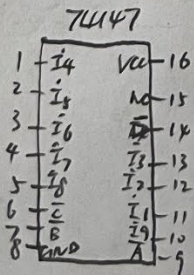 74LS147
1 I4 VCC 16
2 I5 NC 15
3 I6 D 14
4 I7 I3 13
5 I8 I2 12
6 C I1 11
7 B I9 10
8 GND A 9